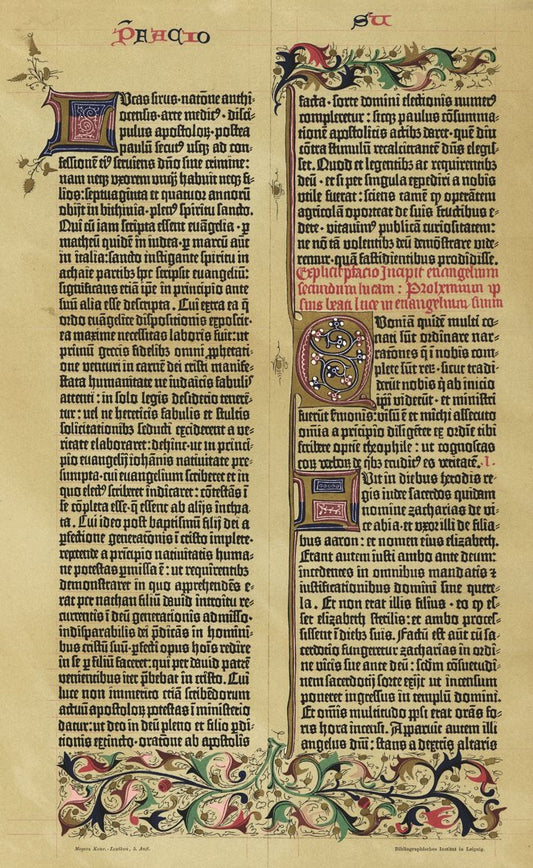 P̄FACIO
SU
Lucas sirus· natōne anthi-
ocensis· arte medicꝰ· disci-
pulus apostoloꝝ· postea
paulū secutꝰ usqꝫ ad con-
fessionē eiꝰ serviens dn̄o sine crimine:
nam neqꝫ vxorem unqꝫ habuit neqꝫ fi-
lios: septuaginta et quatuor annorū
obijt in bithinia· plenꝰ spiritu sancto.
Qui cū iam scripta essent euāgelia· ꝑ
matheū quidē in iudea· ꝑ marcū aūt
in italia: sancto instigante spiritu in
achaie partibꝫ hoc scripsit euangeliū:
significans etiā ipē in principio ante
suū alia esse descripta. Cui extra ea q̄
ordo euāgelice dispositionis exposcit·
ea maxime necessitas laboris fuit: ut
primū grecis fidelibꝫ omni ꝓphetati-
one venturi in carnē dei cristi manife-
stata humanitate ne iudaicis fabulis
attenti: in solo legis desiderio tenerē-
tur: vel ne hereticis fabulis et stultis
solicitationibꝫ seducti excideret a ve-
ritate elaboraret: dehinc· ut in princi-
pio euangelij iohānis natiuitate pre-
sumpta· cui euangelium scriberet et in
quo electꝰ scriberet indicaret: cōtestās ī
se cōpleta esse· q̄ essent ab alijs incho-
ata. Cui ideo post baptismū filij dei a
ꝑfectione generationis ī cristo implete·
repetende a principio natiuitatis huma-
ne potestas ꝑmissa ē: ut requirentibꝫ
demonstraret in quo apprehendēs e-
rat per nathan filiū dauid introitu re-
currentis ī deū generationis admisso·
indisparabilis dei p̄dicās in homini-
bus cristū suū· ꝑfecti opus hoīs redire
in se ꝑ filiū faceret: qui per dauid patrē
venientibus iter p̄bebat in cristo. Cui
luce non immerito etiā scribēdorum
actuū apostoloꝝ potestas ī ministerio
datur: ut deo in deū pleno et filio ꝑdi-
tionis extincto· oratōne ab apostolis
facta· sorte domini electionis numerꝰ
compleretur: sicqꝫ paulus cōsumma-
tionē apostolicis actibꝫ daret· quē diu
cōtra stimulū recalcitrantē dn̄s elegis-
set. Quod et legentibꝫ ac requirentibꝫ
deū· et si per singula expediri a nobis
vtile fuerat: sciens tamē qꝫ operātem
agricolā oporteat de suis fructibus e-
dere· vitauimꝰ publicā curiositatem:
ne nō tā volentibꝫ deū demōstrare vide-
remur· quā fastidientibus prodidisse.
Explicit p̄facio Incipit euangelium
secundum lucam: Prohemium ip-
sius beati luce in euangelium suum
Quoniā quidē multi co-
nati sūt ordinare nar-
rationes q̄ ī nobis com-
plete sūt reꝝ· sicut tradi-
derūt nobis q̄ ab inicio
ipi viderūt· et ministri
fuerūt ẜmonis: visū ē et michi assecuto
omīa a pricipio diligēter ex ordīe tibi
scribere optīe theophile: ut cognoscas
eoꝝ verboꝝ de q̄bꝫ eruditꝰ es veritatē. I.
Fuit in diebus herodis re-
gis iudee sacerdos quidam
nomine zacharias de vi-
ce abia· et vxor illi de filia-
bus aaron: et nomen eius elizabeth.
Erant autem iusti ambo ante deum:
incedentes in omnibus mandatis ⁊
iustificationibus domini sine quere-
la. Et non erat illis filius· eo qꝫ es-
set elizabeth sterilis: et ambo proces-
sissent ī diebꝫ suis. Factū est aūt cū sa-
cerdocio fungeretur zacharias in ordi-
ne vicis sue ante deū: scdm̄ cōsuetudi-
nem sacerdocij sorte exijt ut incensum
poneret ingressus in templū domini.
Et om̄is multitudo ppl̄i erat orās fo-
ris hora incensi. Apparuit autem illi
angelus dn̄i: stans a dextris altaris
Meyers Konv.-Lexikon, 5. Aufl.
Bibliographisches Institut in Leipzig.